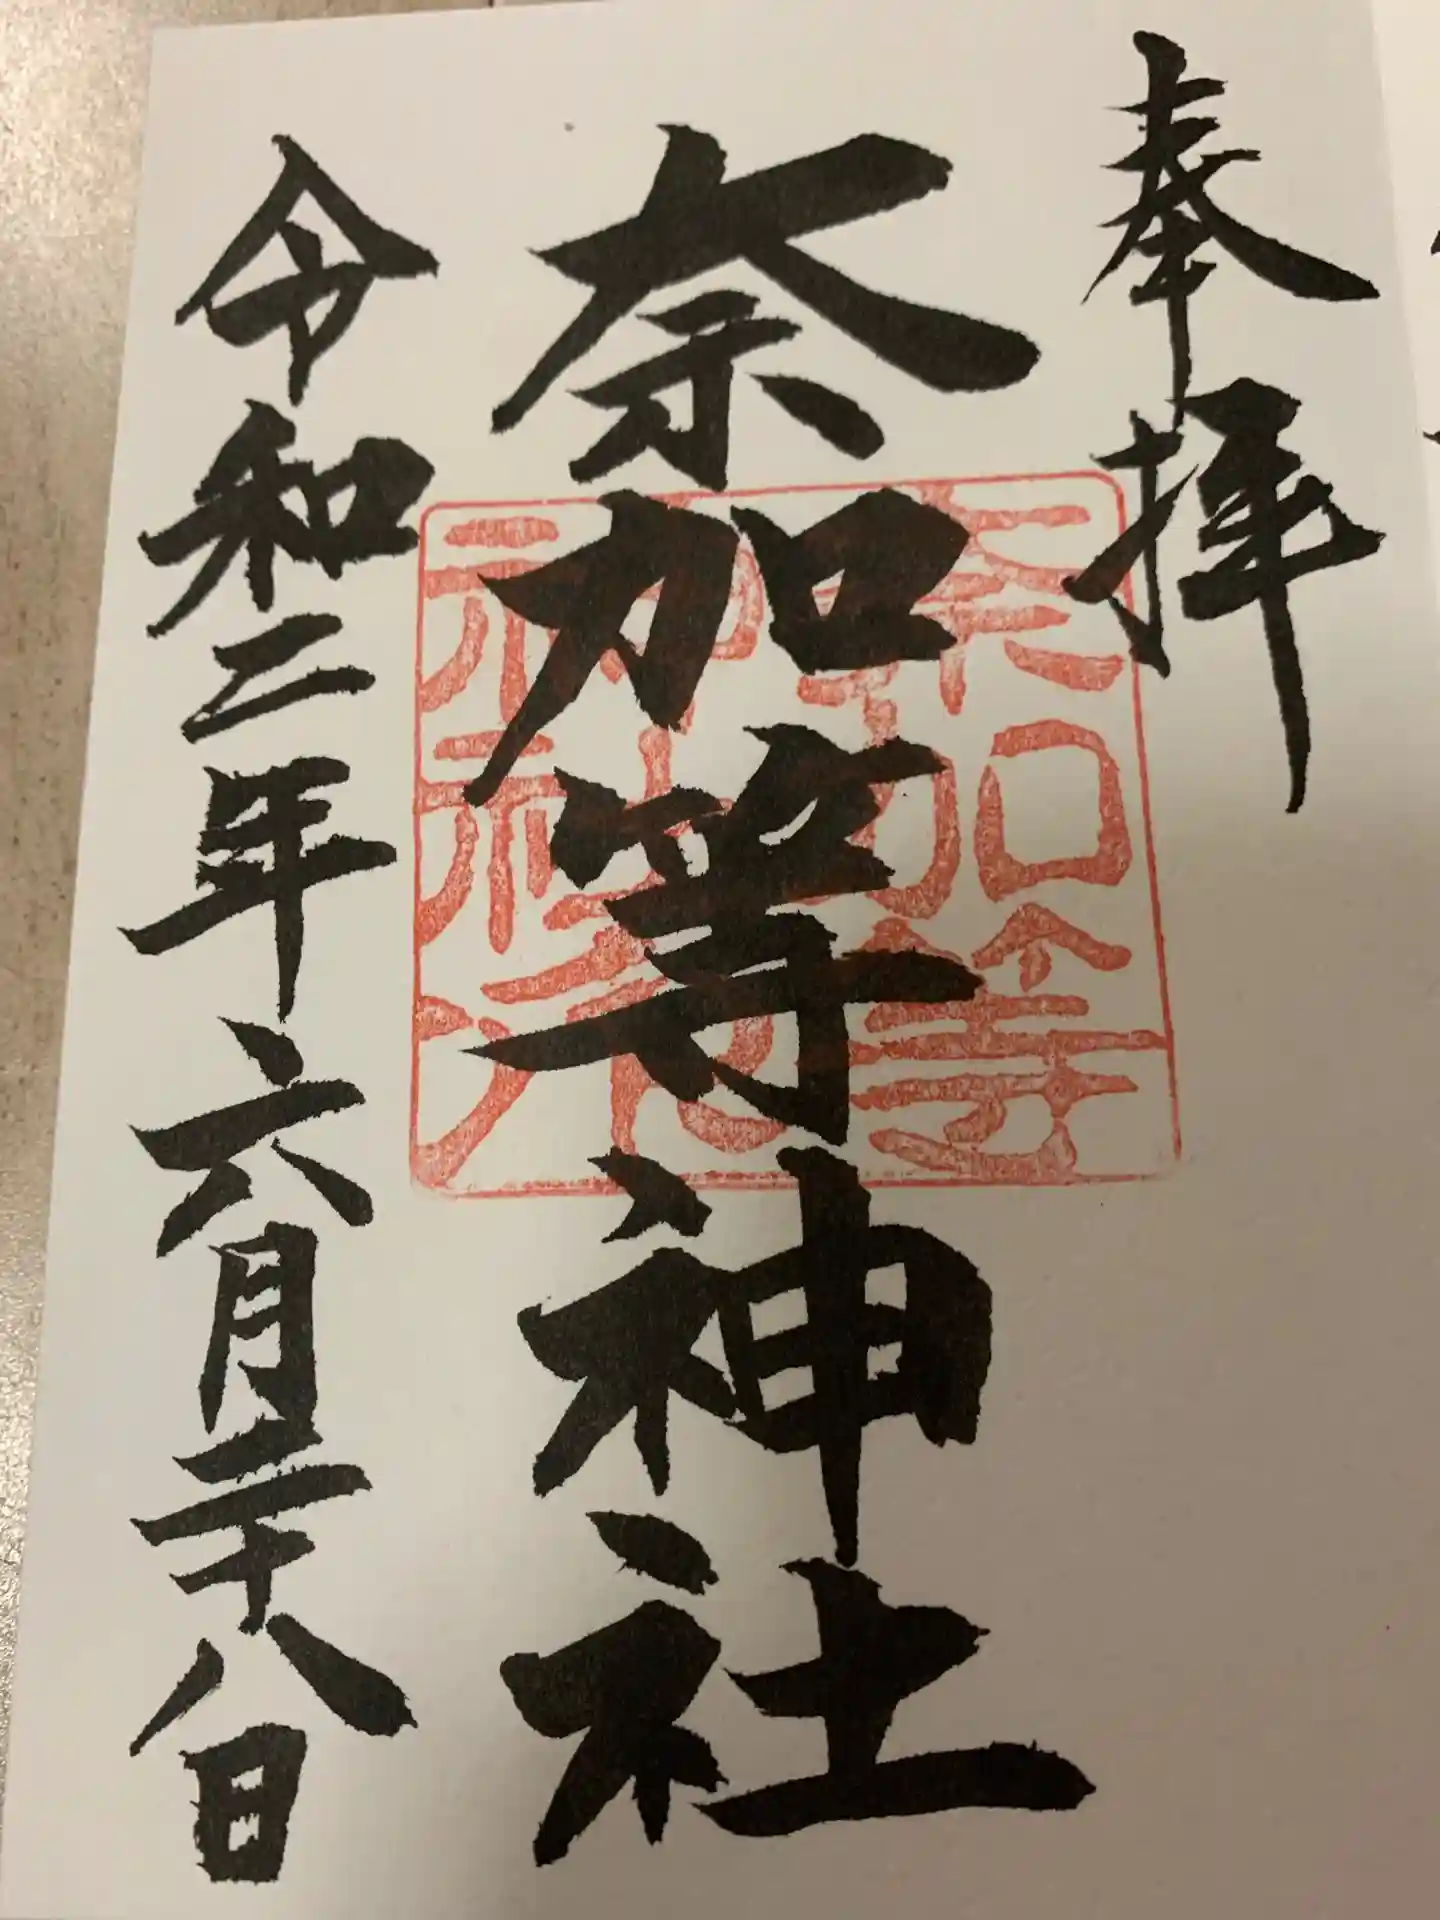 奉拝
奈加等神社
令和二年六月二十八日
奈加等
神社